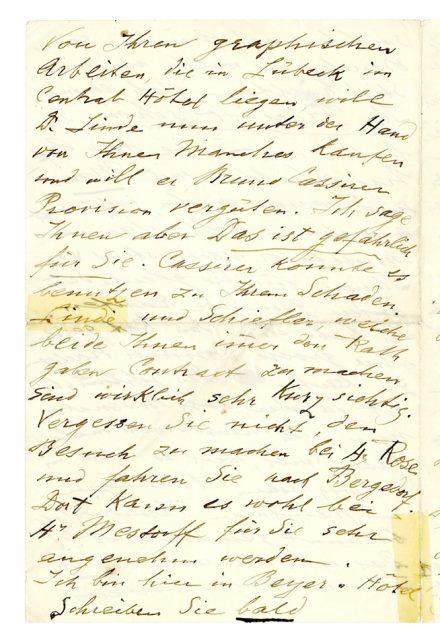 Von Ihren graphischen
Arbeiten, die in Lübeck im
Central Hôtel liegen will
Dr. Linde nun unter der Hand
von Ihnen Manches kaufen
und will er Bruno Cassirer
Provision vergüten. Ich sage
Ihnen aber Das ist gefährlich
für Sie. Cassirer könnte es
benutzen zu Ihrem Schaden.
Linde und Schiefler, welche
beide Ihnen imer den Rath
gaben Contract zu machen
sind wirklich sehr Kurzsichtig.
Vergessen Sie nicht, den
Besuch zu machen bei Hr Rose
und fahren Sie nach Bergedorf.
Dort Kann es wohl bei
Hr Messorff für Sie sehr
angenehm werden.
Ich bin hier in Beyer's Hôtel
Schreiben Sie bald